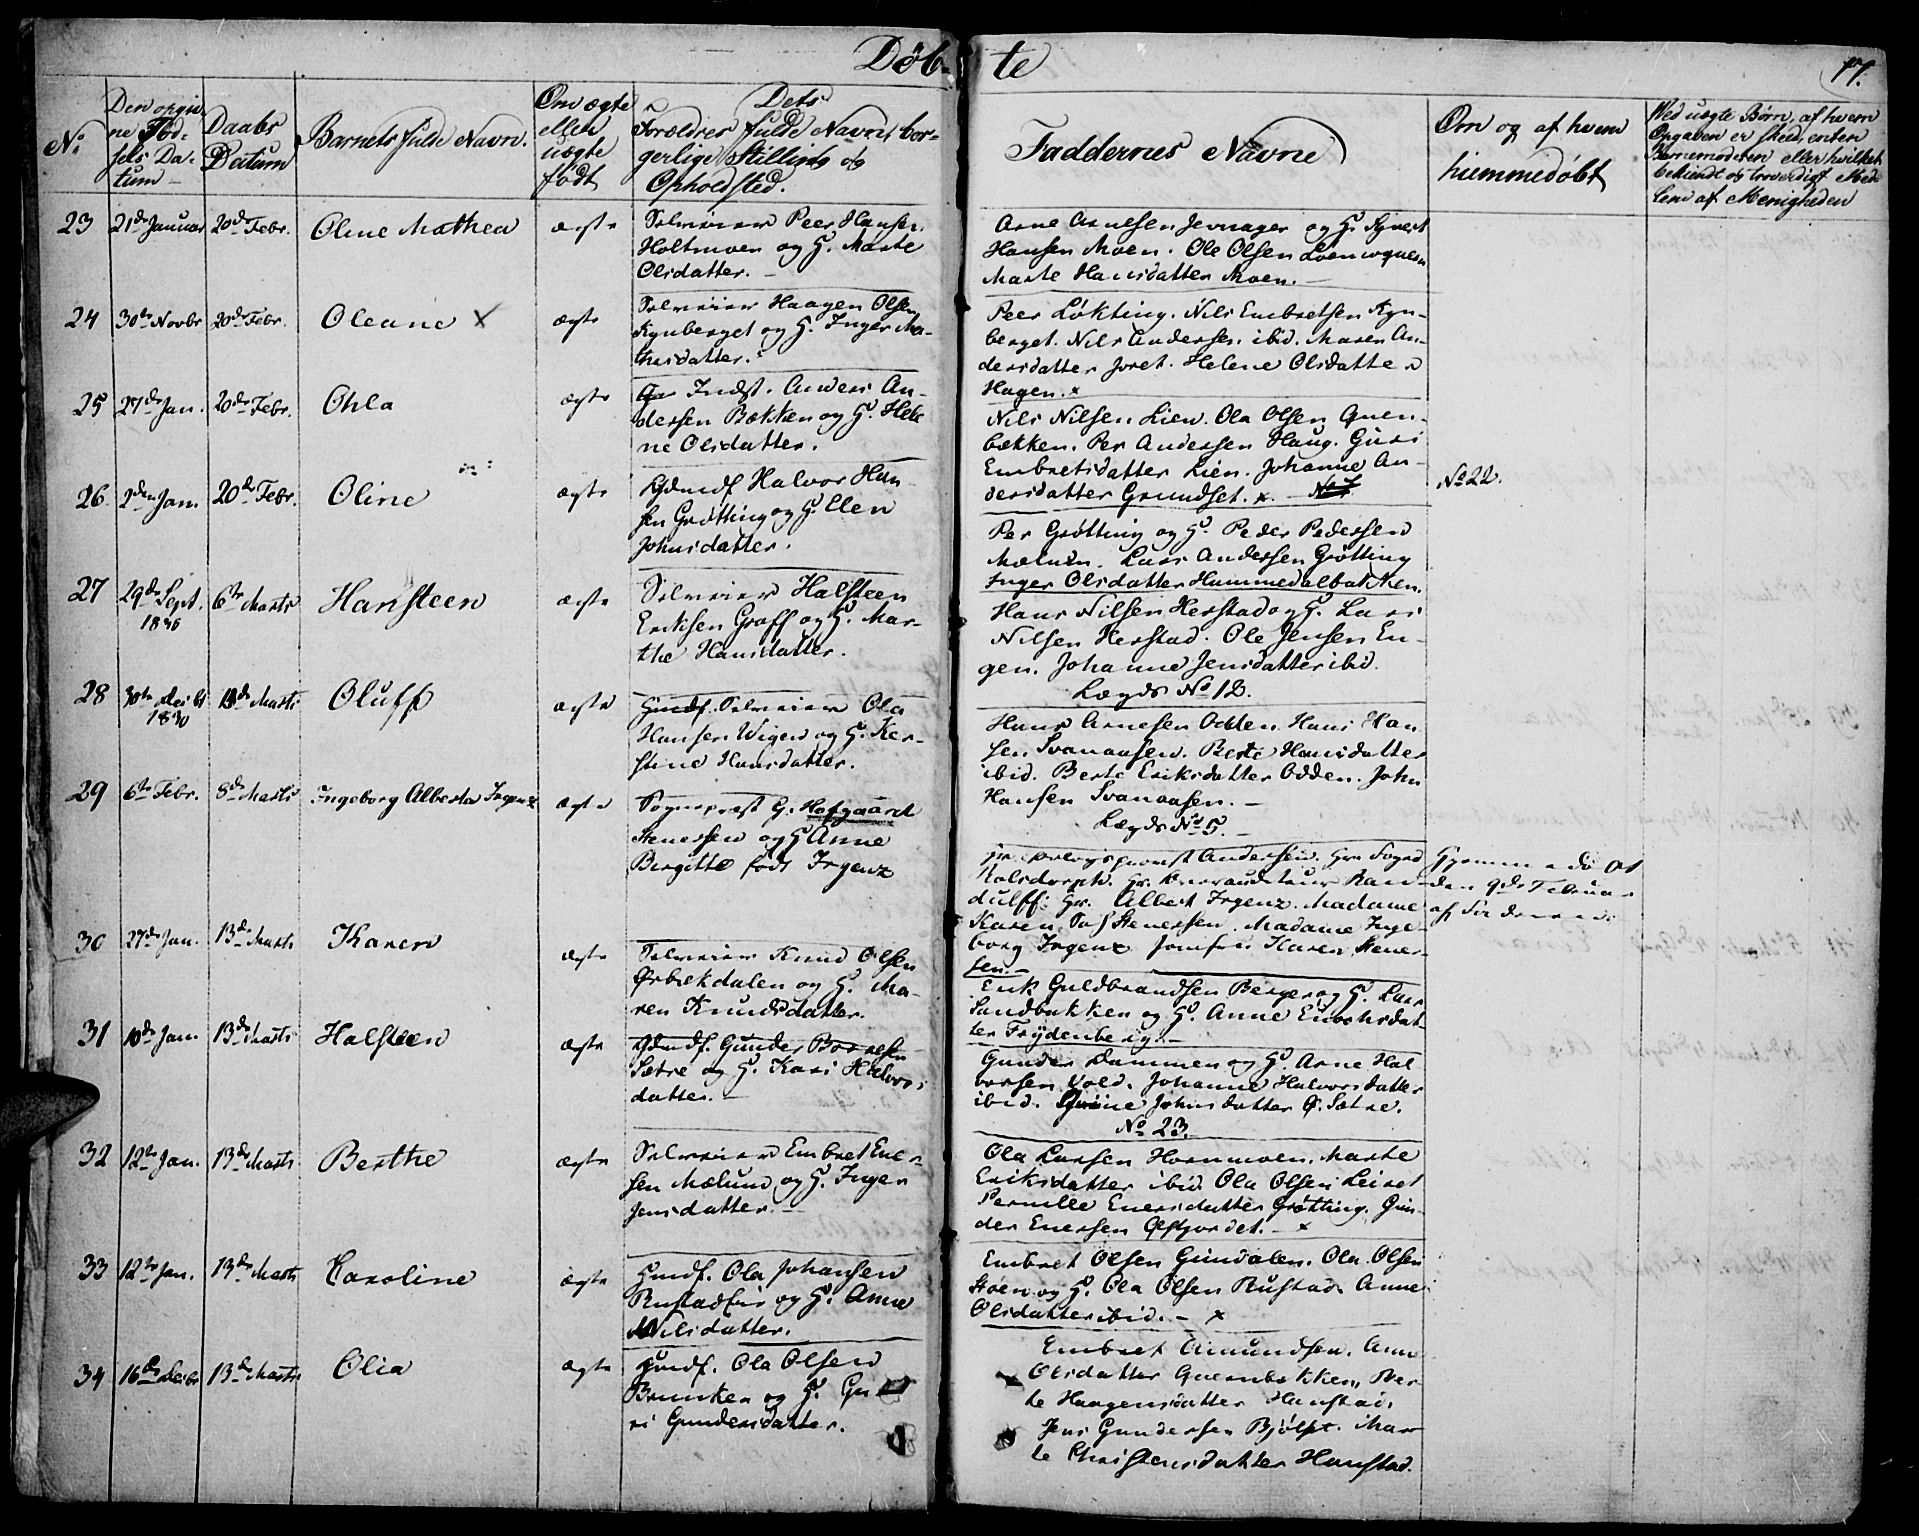 Døb- te
17.
No
Den opgiv-
ne Fød-
sels Da-
tum
Daabs
Datum
Barnets fulde Navn.
Om ægte
eller
uægte
født
Dets
Forældres fulde Navne bor-
gerlige Stilling og
Opholdsted.
Faddernes Navne
Om og af hvem
hiemmedøbt
Ved uægte Børn, af hvem
Opgaven er skeed, enten
Barnemoderen eller hvilket
bekiendt og troverdigt Med-
lem af Menigheden
23 21de Januar 20de Febr. Oline Mathea ægte
Selveier Peer Hansen
Holtmoen og H. Marte
Olsdatter. -
Arne Arnesen Jevnager og H.
Hansen Moen. Ole Olsen
Marte Hansdatter Moen. -
24 30te Novbr 20de Febr. Oleane x ægte
Selveier Haagen Olsen
Kynberget og H. Inger Ma-
thisdatter.
Peer Løkting. Nils Embretsen Kyn-
berget. Nils Andersen ibid. Maren An-
dersdatter Joret. Helene Olsdatter
Hagen. x
25 27de Jan. 20de Febr. Ohla ægte
Indst. Anders An-
dersen Bækken og H. Hele
ne Olsdatter.
Nils Nilsen Lien. Ola Olsen Quen-
bækken. Per Andersen Haug. Guri
Embretsdatter Lien. Johanne An-
dersdatter Grundset. x. -
26. 2den Jan. 20de Febr. Oline ægte
Gdmd. Halvor Han
sen Grøtting og H. Elen
Johnsdatter.
No 22.
Per Grøtting og H. Peder Pedersen
Mælum. Lars Andersen Grøtting
Inger Olsdatter Hummedalbakken.
27 29de Sept. 1830 6te Marts Hansteen ægte
Selveier Halsteen
Eriksen Graff og H. Mar-
the Hansdatter.
Hans Nilsen Herstad og H. Lars
Nilsen Herstad. Ole Jensen En-
gen. Johanne Jensdatter ibid.
Lægds No 12.
28 30te Decbr 1830 13de Marts Oluff ægte
Gmdf. Selveier Ola
Hansen Wigen og H. Ker-
stine Hansdatter.
Hans Arnesen Odden. Hans Han
sen Svanaasen. Berte Hansdatter
ibid. Berte Eriksdatter Odden. John
Hansen Svanaasen. -
Lægds No 5. -
29 6te Febr. 8de Marts Ingeborg Alberta Irgenz ægte
Sognepræst G. Hofgaard
Stenersen og H Anne
Birgitte født Irgenz
Andersen. Hr. Foged
Kolsdorph. Hr. Overauditeur Ran-
dulff. Hr. Albert Irgenz. Madame
Karen Stenersen. Madame Inge-
borg Irgenz Jomfru Karen Stener-
sen. -
Hjemmedøbt
den 9de Februar
af Faderen.
30 27de Jan. 13de Marts Karen ægte
Selveier Knud Olsen
Ørbekdalen og H. Ma-
ren Knudsdatter.
Erik Guldbrandsen Berger og H. Lars
Sandbakken og H. Anne Embretsdat-
ter Frydenberg. -
31 10de Jan. 13de Marts Halsteen ægte
Gdmdf. Gunder Baarsen
Sætre og H. Kari Halvors
datter. -
Gunder Dammen og H. Arne Hal
vorsen Vold. Johanne Halvorsdatter
ibid. Johnsdatter Ø. Sætre.
No 23.
32 12te Jan. 13de Marts Berthe ægte
Selveier Embret Ener-
sen Mælum og H. Inger
Jensdatter. -
Ola Larsen Hornmoen. Marte
Eriksdatter ibid. Ola Olsen Leiret
Pernille Enersdatter Grøtting. Gun-
der Enersen Østfjordet. - x
33 12te Jan. 13de Marts Karoline ægte
Gmdf. Ola Johansen
Rustad og H. Anne
Nilsdatter.
Embret Olsen Gundalen. Ola Olsen
Støen og H. Ola Olsen Rustad. Anne
Olsdatter ibid. - x
34 16de Decbr 13de Marts Olia ægte
Gmdf. Ola Olsen
Brunken og H. Gu
ri Gundersdatter.
Embret Amundsen. Anne
Olsdatter Quernbekken, Ber-
te Haagensdatter Hanstad.
Jens Gundersen Bjølset. Mar
te Christensdatter Hanstad.